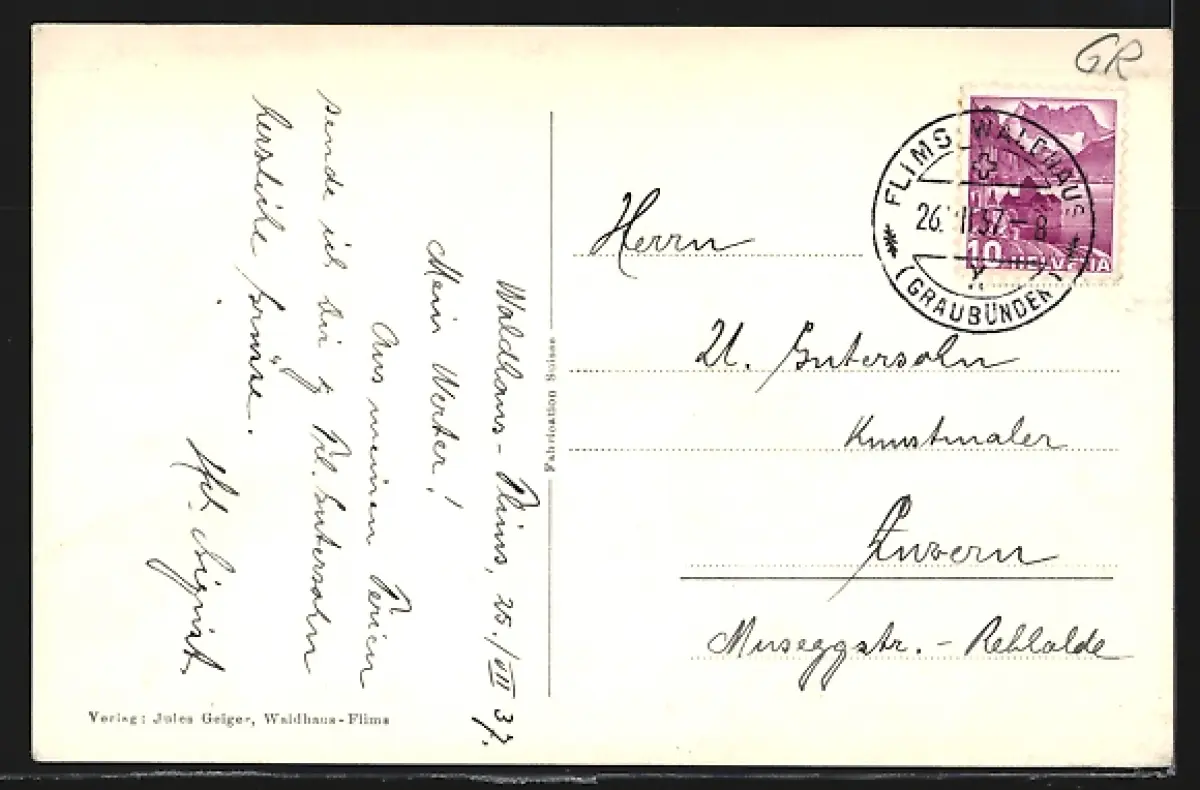 GR
FLIMS-WALDHAUS
26. VII 37 - 8
(GRAUBÜNDEN)
10 HELVETIA
Waldhaus-Flims, 25./VII 37.
Mein Werter!
Aus meinen Ferien
sende ich Dir & Frl. Gutersohn
herzliche Grüsse.
Sigrist.
Verlag: Jules Geiger, Waldhaus-Flims
Fabrication Suisse
Herrn
U. Gutersohn
Kunstmaler
Luzern
Museggstr. - Rebhalde